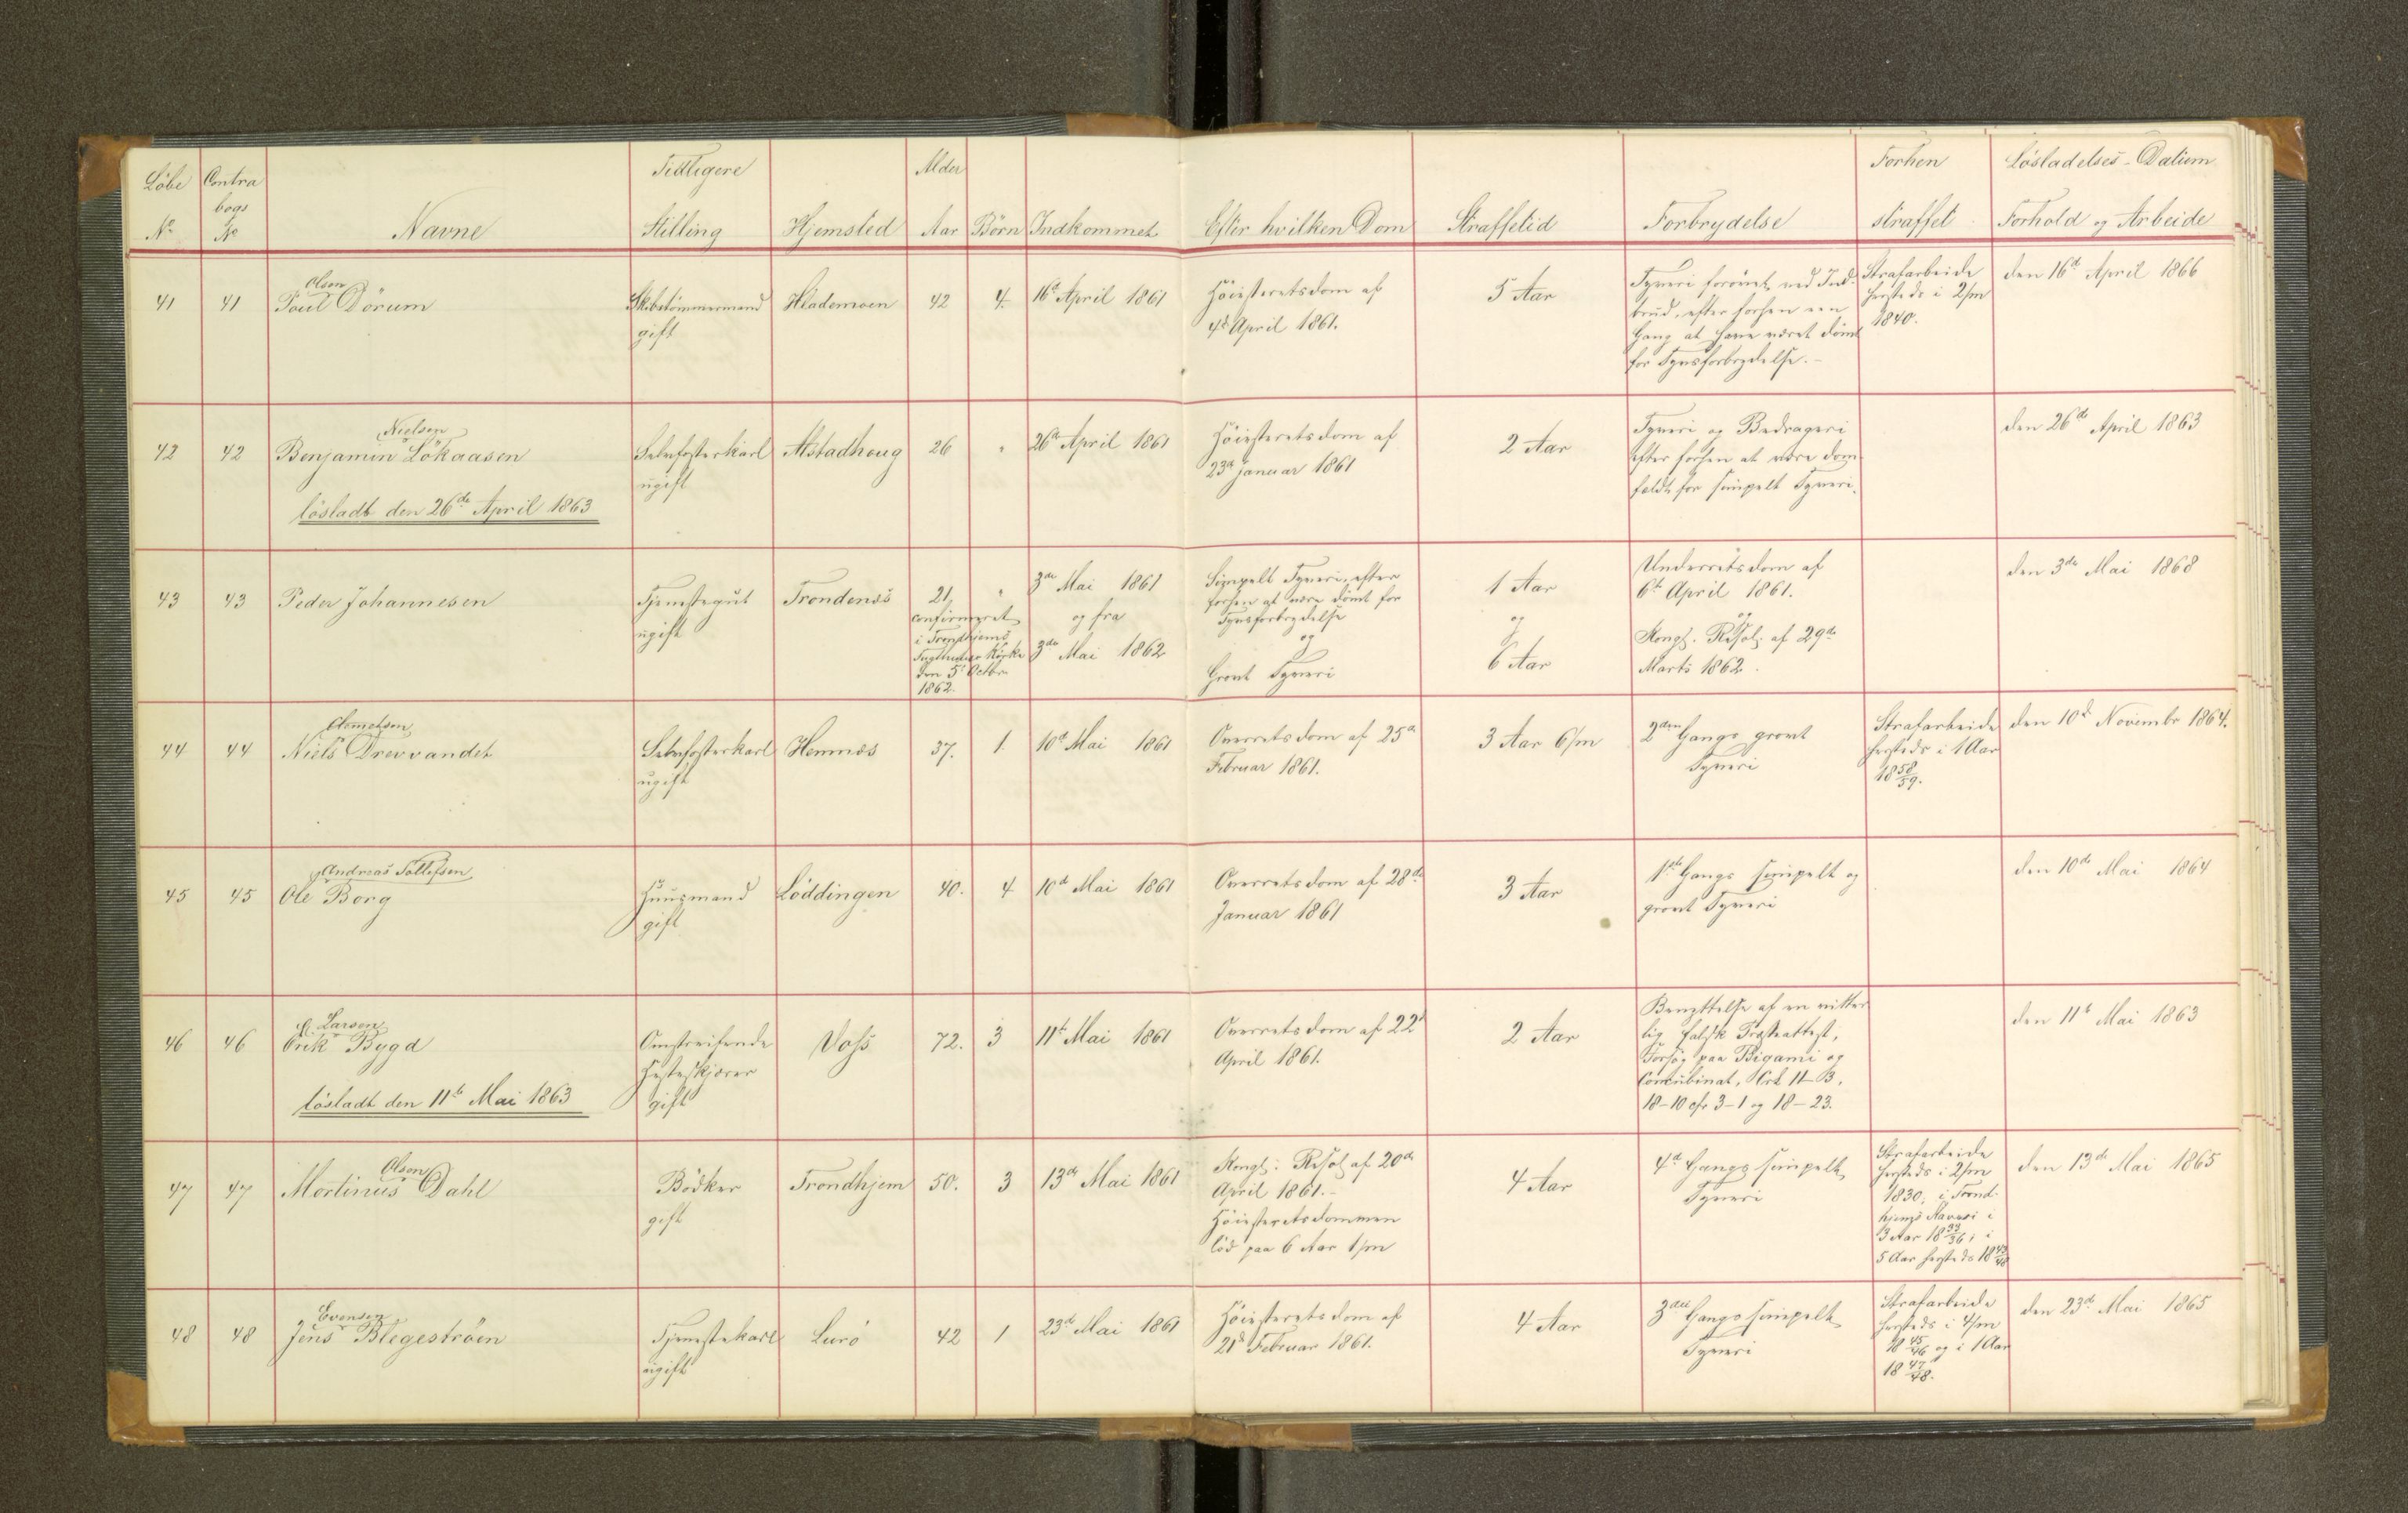 Löbe No
Contra bogs No
Navne
Tidligere Stilling
Hjemsted
Alder Aar
Börn
Indkommet
Efter hvilken Dom
Straffetid
Forbrydelse
Forhen straffet
Lösladelses-Datum
Forhold og Arbeide
41
41
Olsen
Poul Dörum
Skibstömmermand
gift
Hlademoen
42
4.
16d April 1861
Höiesteretsdom af
4d April 1861.
5 Aar
Tyveri forövet ved Ind-
brud, efter forhen een
Gang at have været dömt
for Tyvsforbrydelse.-
Strafarbeide
hersteds i 2/m
1840.
den 16d April 1866
42
42
Nielsen
Benjamin Lökaasen
lösladt den 26de April 1863
Selvfosterkarl
ugift
Alstadhoug
26
"
26d April 1861
Höiesteretsdom af
23d Januar 1861
2 Aar
Tyveri og Bedrageri
efter forhen at være dom-
fældt for simpelt Tyveri.
den 26de April 1863
43
43
Peder Johannesen
Tjenestegut
ugift
Trondenæs
21,
confirmeret
i Trondhjems
Tugthuus Kirke
den 5t Octbr
1862.
"
3die Mai 1861
og fra
3die Mai 1862
Simpelt Tyveri, efter
forhen at være dömt for
Tyvsforbrydelse
og
Grovt Tyveri
1 Aar
og
6 Aar
Underretsdom af
6te April 1861.
og
Kongl. Resol. af 29de
Marts 1862.
den 3die Mai 1868
44
44
Niels Drevvandet
Selvfosterkarl
ugift
Hemnæs
37.
1.
10d Mai 1861
Overretsdom af 25d
Februar 1861.
3 Aar 6/m
2den Gangs grovt
Tyveri
Strafarbeide
hersteds i 1 Aar
18 58/59.
den 10d Novembr 1864.
45
45
Andreas Tollefsen
Ole Borg
Huusmand
gift
Löddingen
40.
4
10d Mai 1861
Overretsdom af 28de
Januar 1861
3 Aar
1ste Gangs simpelt og
grovt Tyveri
den 10de Mai 1864
46
46
Larsen
Erik Bygd
lösladt den 11te Mai 1863
Omstreifende
Hesteskjærer
gift
Voss
72.
3
11te Mai 1861
Overretsdom af 22d
April 1861.
2 Aar
Benyttelse af en vitter-
lig falsk Præsteattest,
Forsög paa Bigami og
Concubinat, Crl 11-3,
18-10 cfr 3-1 og 18-23.
den 11te Mai 1863
47
47
Olsen
Mortinus Dahl
Bödker
gift
Trondhjem
50.
3
13de Mai 1861
Kongl. Resol. af 20de
April 1861.-
Höiesteretsdommen
löd paa 6 Aar 1/m
4 Aar
4d Gangs simpelt
Tyveri
Strafarbeide
hersteds i 2/m
1830, i Trond-
hjems Slaveri i
3 Aar 18 33/36, i
5 Aar hersteds 18 43/48
den 13de Mai 1865
48
48
Evensen
Jens Blegeströen
Tjenestekarl
ugift
Lurö
42
1
23d Mai 1861
Höiesteretsdom af
21d Februar 1861.
4 Aar
3die Gangs simpelt
Tyveri
Strafarbeide
hersteds i 4/m
18 45/46 og i 1 Aar
18 47/48.
den 23d Mai 1865